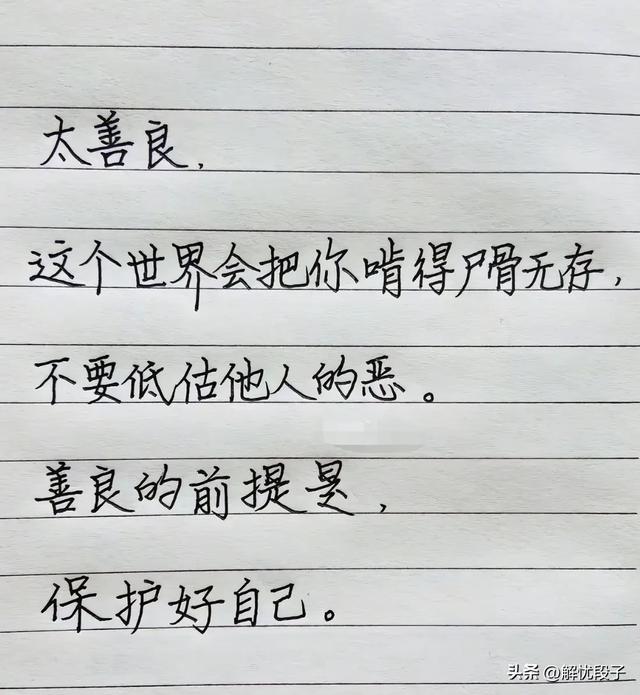 太善良，
这个世界会把你啃得尸骨无存，
不要低估他人的恶。
善良的前提是，
保护好自己。
头条 @解忧段子